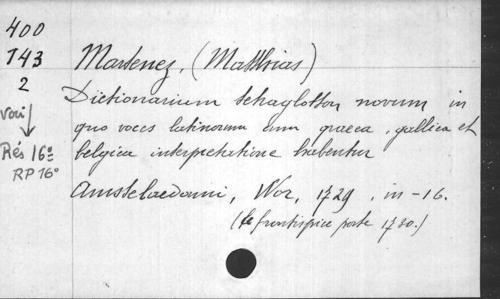 400
743
2
voir
Rés 16º
RP 16º
Martenez, (Matthias)
Dictionarium tetraglotton novum in
quo voces latinorum cum graeca, gallica et
belgica interpretatione habentur
Amstelaedami, Wor, 1729, in-16.
(le frontispice porte 1730.)